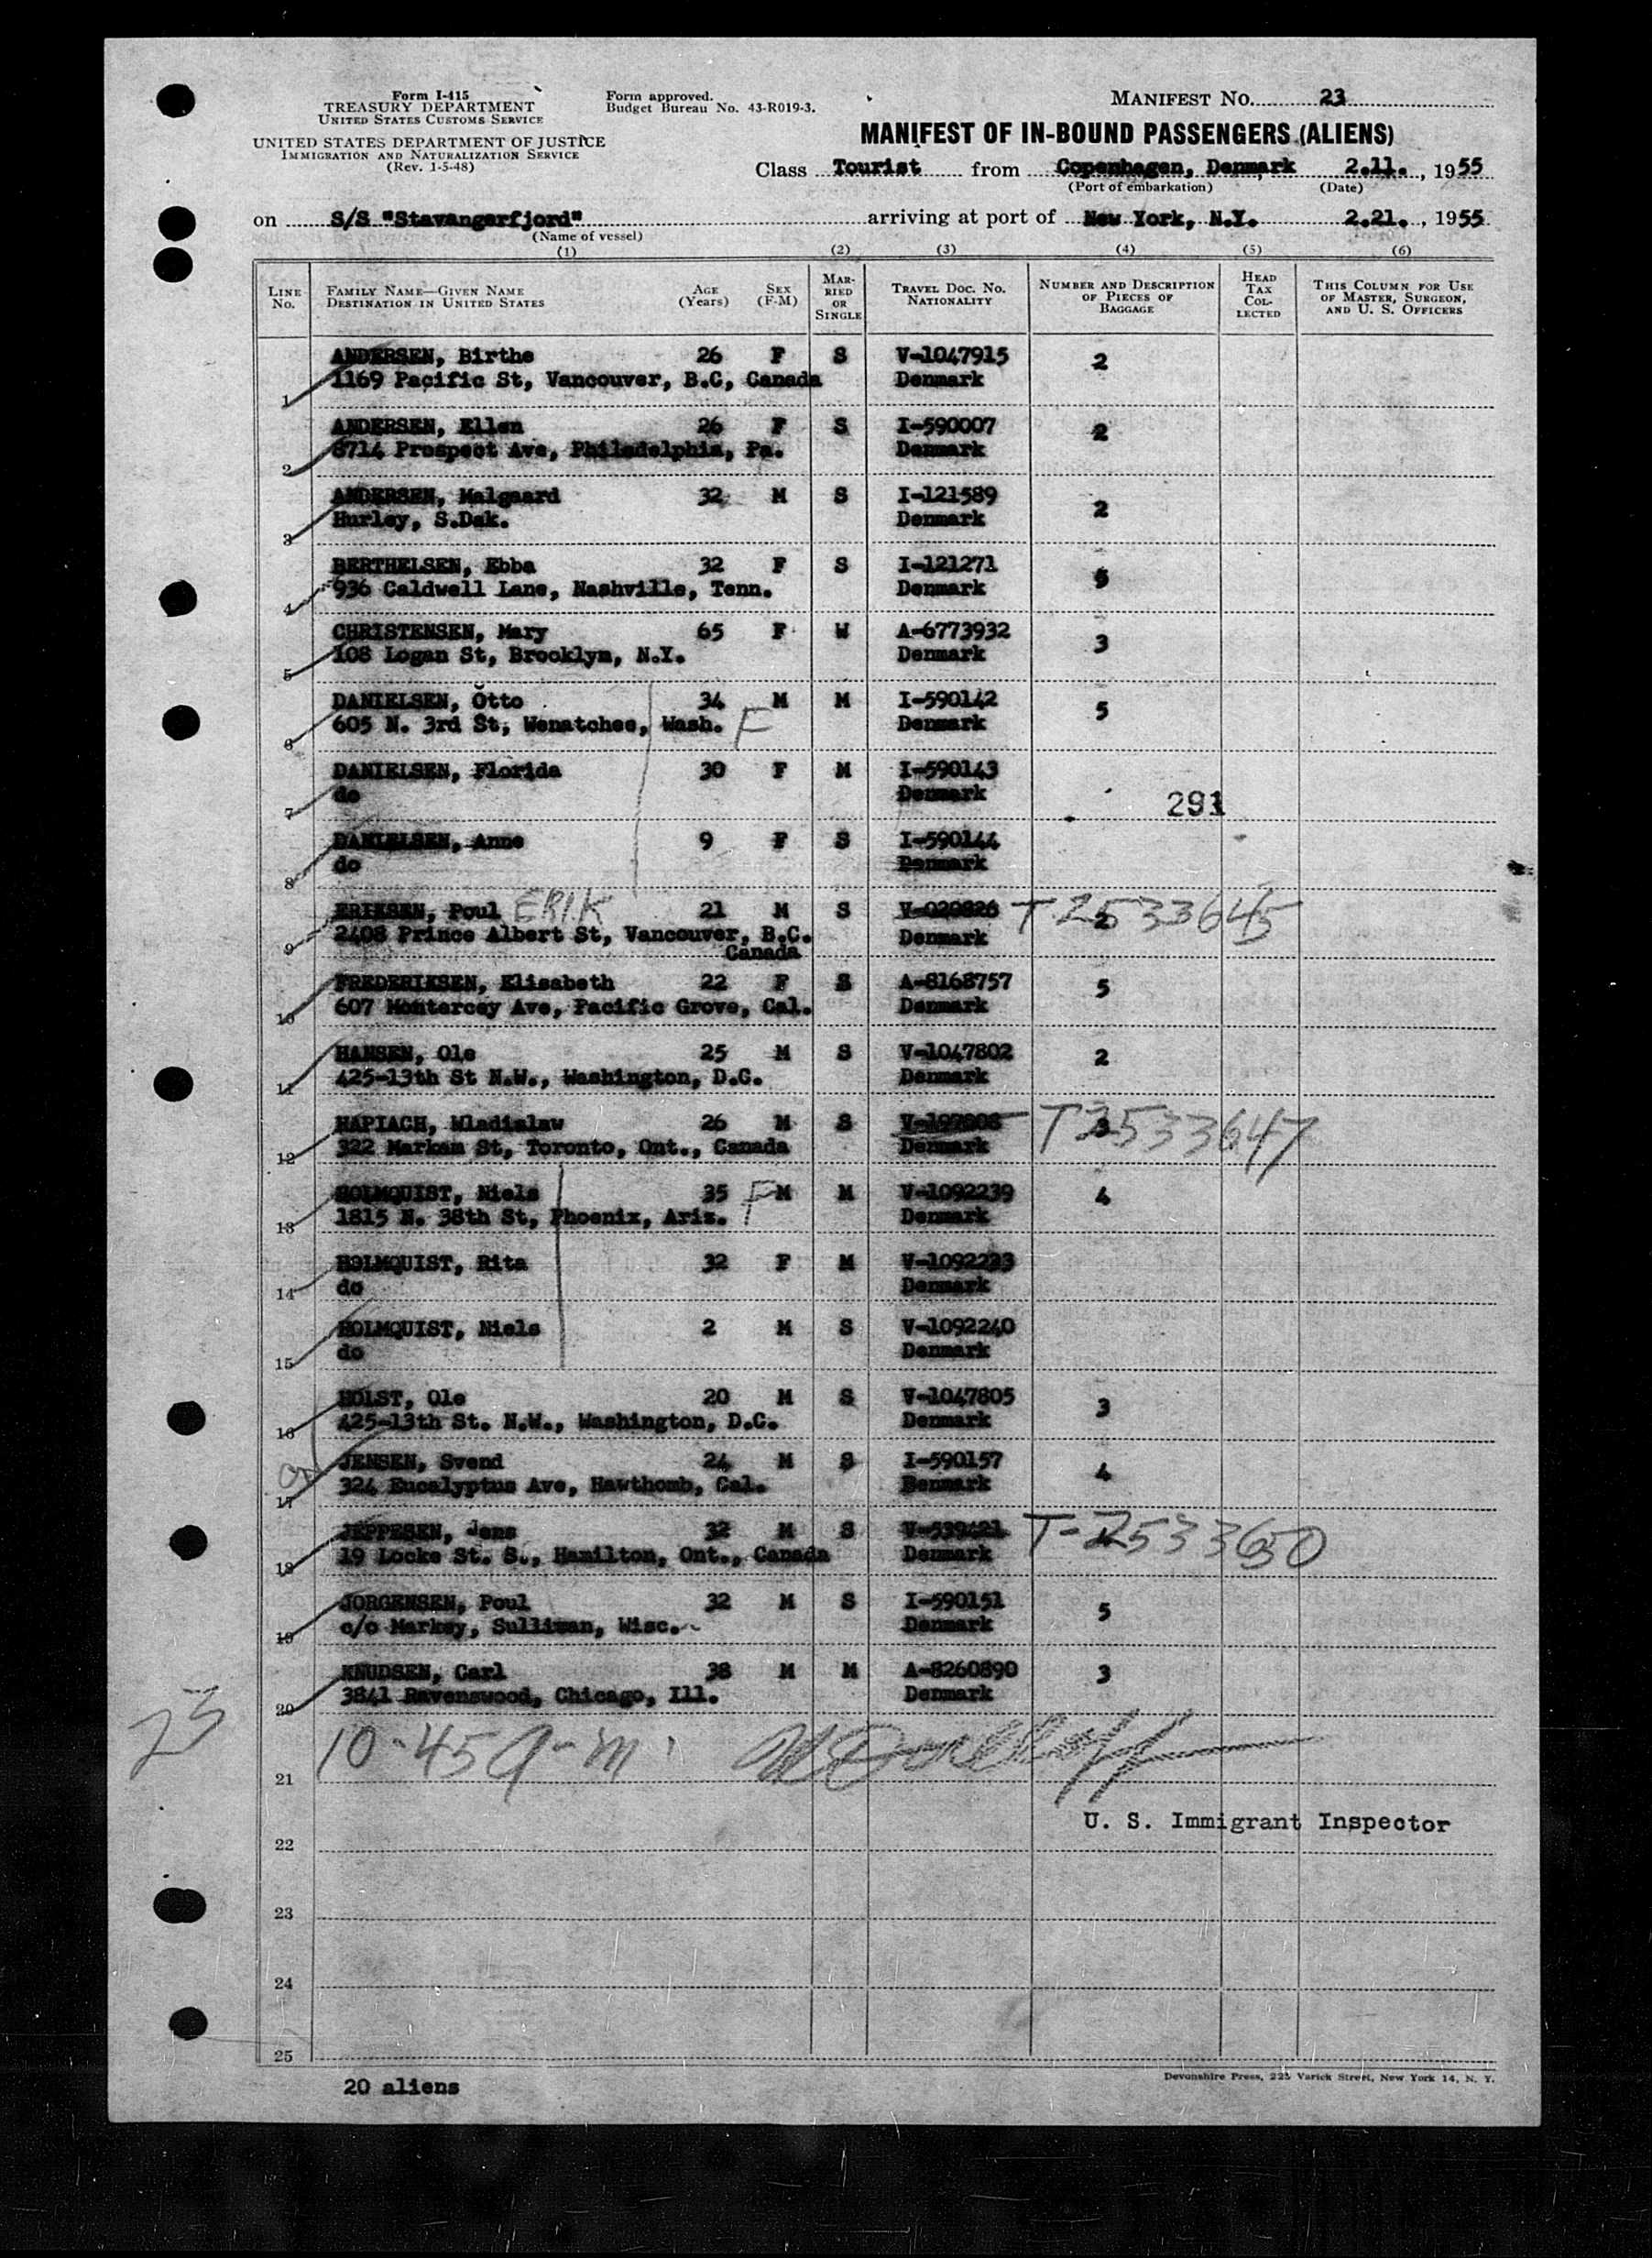 Form I-415
TREASURY DEPARTMENT
UNITED STATES CUSTOMS SERVICE
UNITED STATES DEPARTMENT OF JUSTICE
IMMIGRATION AND NATURALIZATION SERVICE
(Rev. 1-5-48)
Form approved.
Budget Bureau No. 43-R019-3.
MANIFEST NO. 23
MANIFEST OF IN-BOUND PASSENGERS (ALIENS)
Class Tourist from Copenhagen, Denmark 2.11. , 1955
(Port of embarkation) (Date)
on S/S "Stavangerfjord" arriving at port of New York, N.Y. 2.21. , 1955
(Name of vessel)
(1) (2) (3) (4) (5) (6)
LINE NO. FAMILY NAME—GIVEN NAME DESTINATION IN UNITED STATES AGE (Years) SEX (F-M) MARRIED OR SINGLE TRAVEL DOC. NO. NATIONALITY NUMBER AND DESCRIPTION OF PIECES OF BAGGAGE HEAD TAX COLLECTED THIS COLUMN FOR USE OF MASTER, SURGEON, AND U. S. OFFICERS
ANDERSEN, Birthe 26 F S V-1047915 2
1 1169 Pacific St, Vancouver, B.C, Canada Denmark
ANDERSEN, Ellen 26 F S I-590007 2
2 8714 Prospect Ave, Philadelphia, Pa. Denmark
ANDERSEN, Malgaard 32 M S I-121589 2
3 Hurley, S.Dak. Denmark
BERTHELSEN, Ebba 32 F S I-121271 5
4 936 Caldwell Lane, Nashville, Tenn. Denmark
CHRISTENSEN, Mary 65 F W A-6773932 3
5 108 Logan St, Brooklyn, N.Y. Denmark
DANIELSEN, Otto 34 M M I-590142 5
6 605 N. 3rd St, Wenatchee, Wash. F Denmark
DANIELSEN, Florida 30 F M I-590143
7 do Denmark 291
DANIELSEN, Anne 9 F S I-590144
8 do Denmark
ERIKSEN, Poul ERIK 21 M S V-020826 T-2533645 2
9 2408 Prince Albert St, Vancouver, B.C. Denmark
Canada
FREDERIKSEN, Elisabeth 22 F S A-8168757 5
10 607 Montercey Ave, Pacific Grove, Cal. Denmark
HANSEN, Ole 25 M S V-1047802 2
11 425-13th St N.W., Washington, D.C. Denmark
HAPIACH, Wladislaw 26 M S T2533647 3
12 322 Markam St, Toronto, Ont., Canada Denmark
HOLMQUIST, Niels 35 F M M V-1092239 4
13 1815 N. 38th St, Phoenix, Ariz. Denmark
HOLMQUIST, Rita 32 F M V-1092233
14 do Denmark
HOLMQUIST, Niels 2 M S V-1092240
15 do Denmark
HOLST, Ole 20 M S V-1047805 3
16 425-13th St. N.W., Washington, D.C. Denmark
JENSEN, Svend 24 M S I-590157 4
17 324 Eucalyptus Ave, Hawthomb, Cal. Denmark
JEPPESEN, Jens 32 M S V-539421 T-2533650
18 19 Locke St. S., Hamilton, Ont., Canada Denmark
JORGENSEN, Poul 32 M S I-590151 5
19 c/o Markey, Sulliman, Wisc. Denmark
KNUDSEN, Carl 38 M M A-8260890 3
20 3841 Ravenswood, Chicago, Ill. Denmark
23
10-45 a-m.
21
U. S. Immigrant Inspector
22
23
24
25
20 aliens
Devonshire Press, 225 Varick Street, New York 14, N. Y.